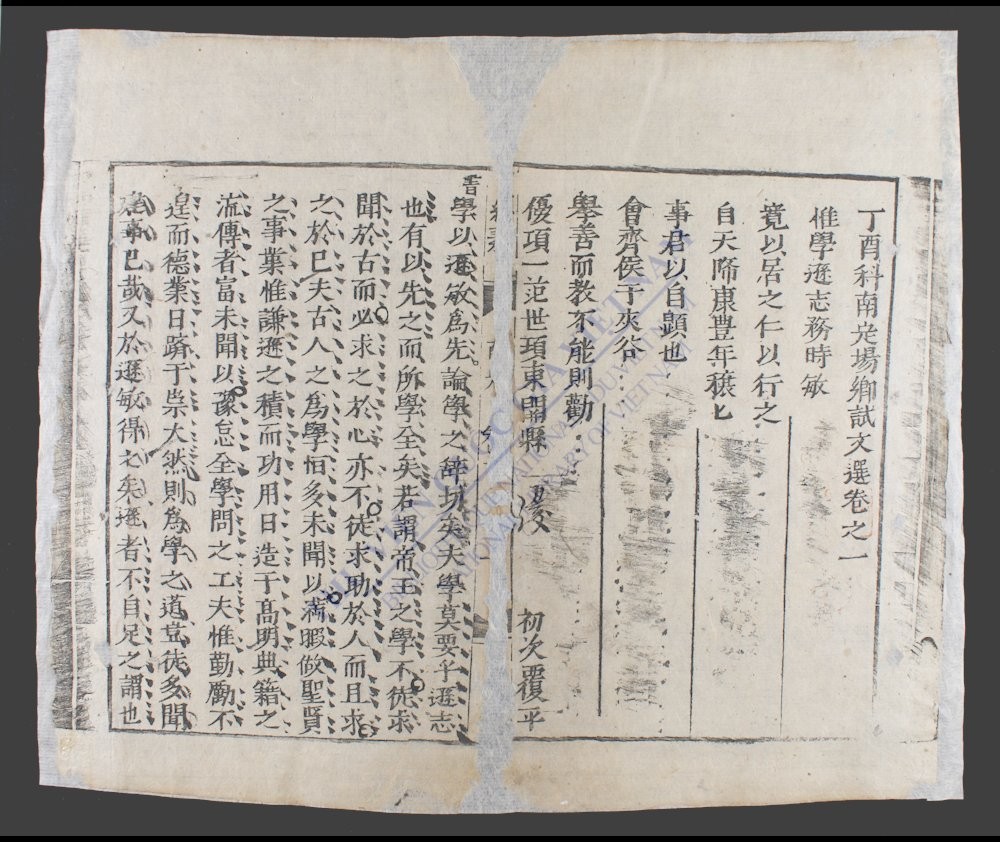 丁酉科南定場鄉試文選卷之一
惟學遜志務時敏
寬以居之仁以行之
自天降康豊年穰匕
事君以自顕也
會齊侯于夾谷
舉善而教不能則勸
優項一 范世項東関縣 初次覆平
學以遜敏爲先論學之辞切矣夫學莫要乎遜志
也有以先之而所學全矣若謂帝王之學不徒求
聞於古而必求之於心亦不徒求助於人而且求
之於已夫古人之爲學恒多未聞以満暇僘聖賢
之事業惟謙遜之積而功用日造于髙明典籍之
流傳者富未聞以豫怠全學問之工夫惟勤勵不
遑而德業日躋于崇大然則爲學之道豈徒多聞
建事已哉又於遜敏得之矣遜者不自足之謂也
THƯ VIỆN QUỐC GIA VIỆT NAM
NATIONAL LIBRARY OF VIETNAM